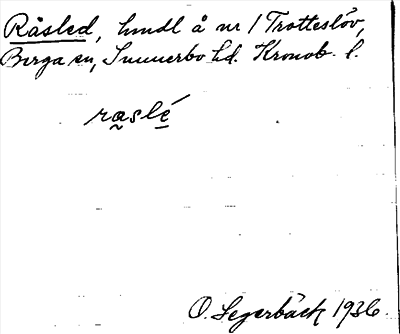 Råsled, hmdl å nr 1 Trotteslöv,
Berga sn, Sunnerbo hd. Kronob. l.
raslé̱
O. Segerbäck 1936.